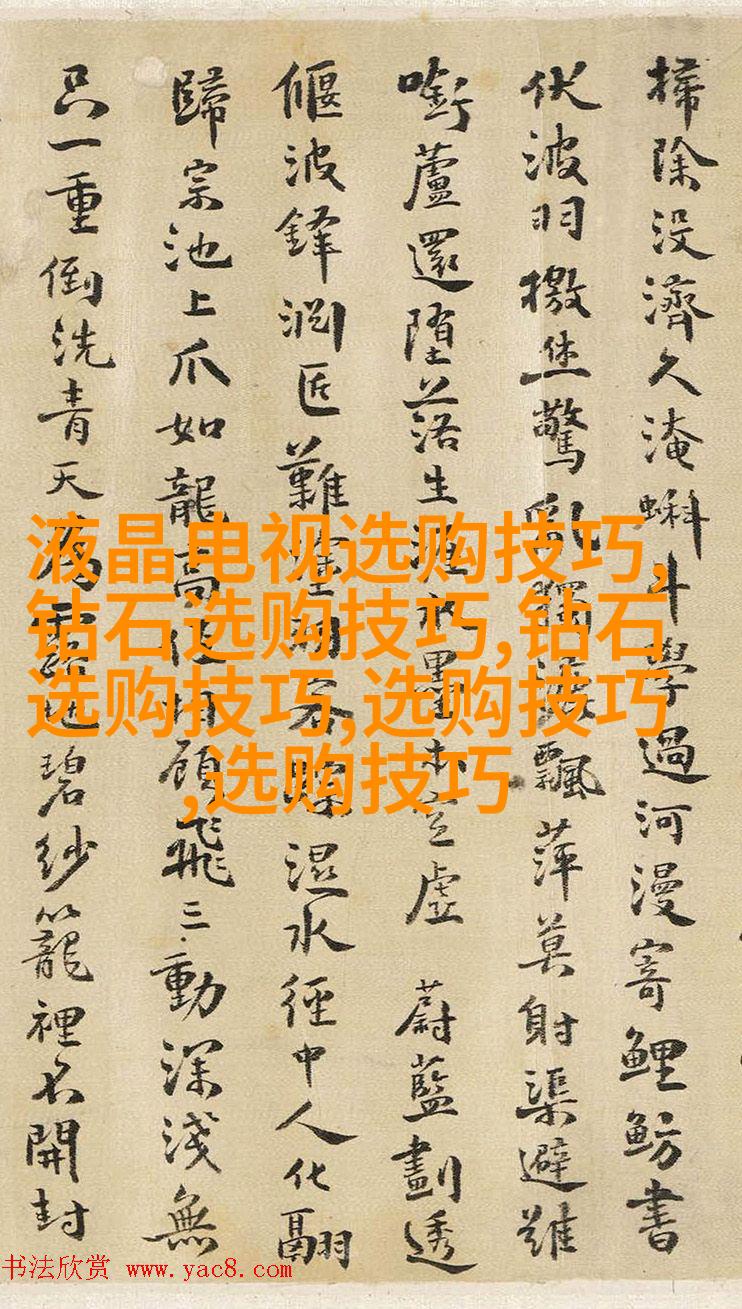 掃除沒濟久淹蝌斗學過河漫寄鯉魴書
伏波羽檄並驚亂獨漾飄萍莫射渠避難
啣蘆還墮落生
墨 虛 蔚藍劃透
偃波鋒澗匠難 濕水經中人化翮
歸宗池上爪如龍高 顧飛三動深淺無
只一重倒洗青天 碧紗籠裡不開封
液晶电视选购技巧,
钻石选购技巧,钻石
选购技巧,选购技巧
,选购技巧
书法欣赏 www.yac8.com